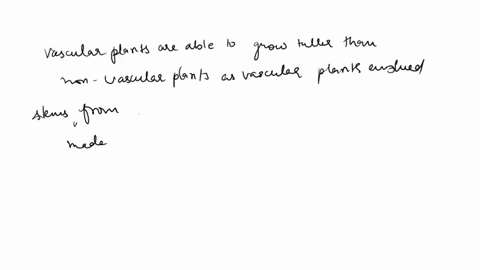 vascular plants are able to grow taller than
non-vascular plants as vascular plants evolved
stems, from
made